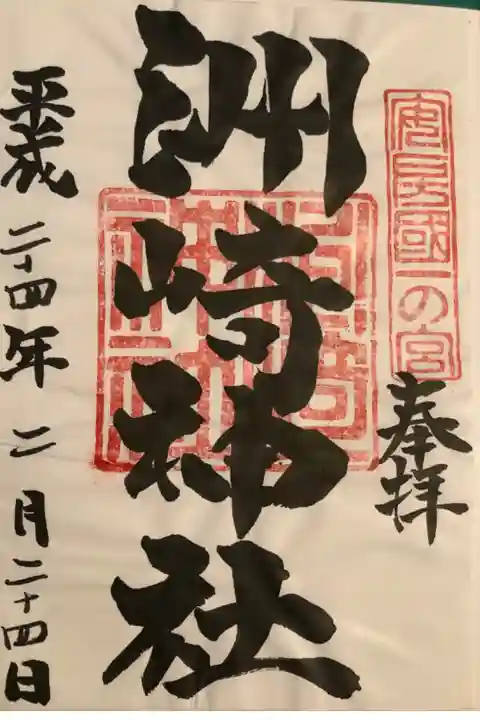 安房國一の宮
奉拝
洲崎神社
平成二十四年二月二十四日